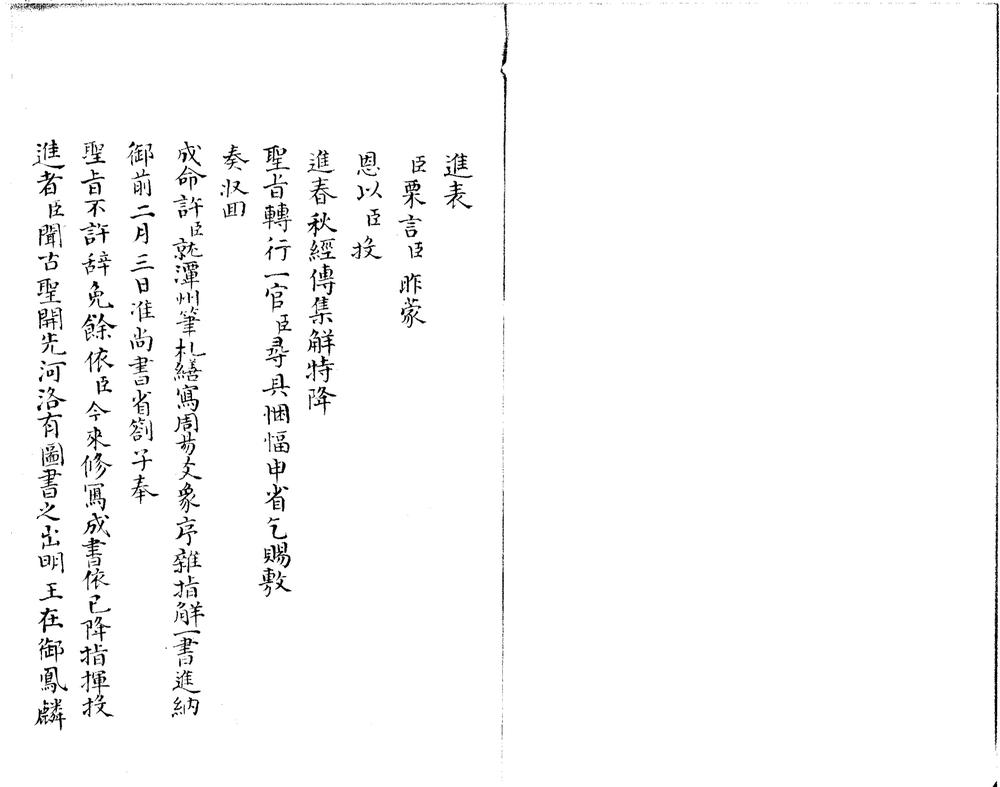 進表
臣栗言臣昨蒙
恩以臣投
進春秋經傳集解特降
聖旨轉行一官臣尋具悃愊申省乞賜敷
奏収囬
成命許臣就潭州筆札繕寫周昜文象序雜指觧一書進納
御前二月三日准尚書省劄子奉
聖旨不許辞免餘依臣今來修冩成書依已降指揮投
進者臣聞古聖開先河洛有圖書之出明王在御鳳麟